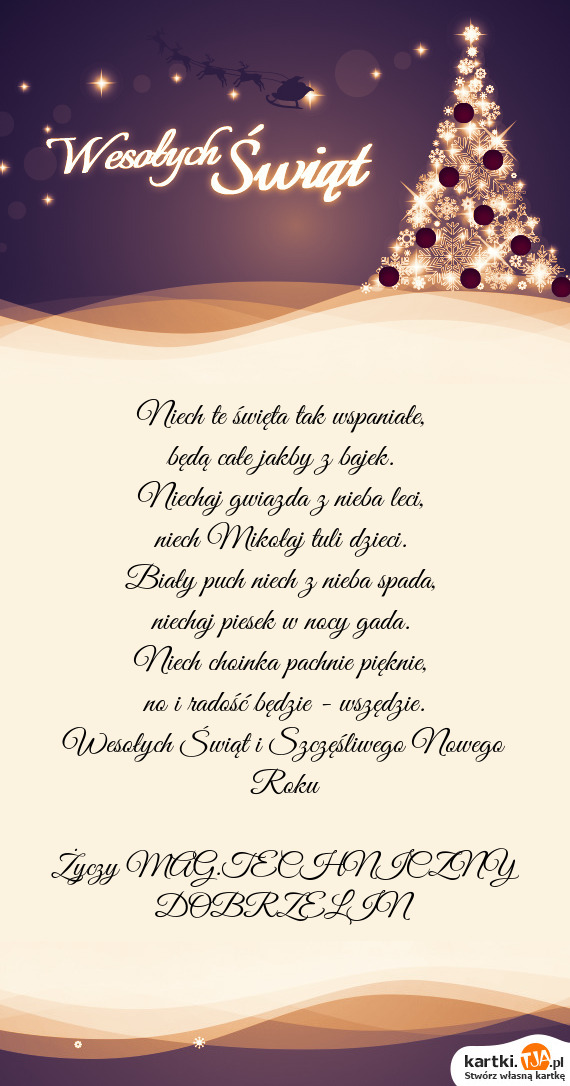 Wesołych Świąt
Niech te święta tak wspaniałe,
będą całe jakby z bajek.
Niechaj gwiazda z nieba leci,
niech Mikołaj tuli dzieci.
Biały puch niech z nieba spada,
niechaj piesek w nocy gada.
Niech choinka pachnie pięknie,
no i radość będzie - wszędzie.
Wesołych Świąt i Szczęśliwego Nowego
Roku
Życzy MAG.TECHNICZNY
DOBRZELIN
kartki.TJA.pl
Stwórz własną kartkę